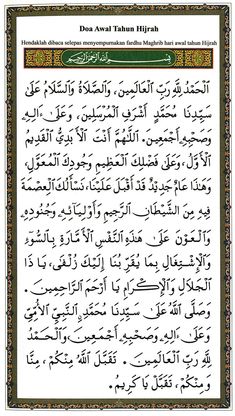 Doa Awal Tahun Hijrah
Hendaklah dibaca selepas menyempurnakan fardhu Maghrib hari awal tahun Hijrah
بِسْمِ اللَّهِ الرَّحْمَنِ الرَّحِيمِ
اَلْحَمْدُ لِلَّهِ رَبِّ الْعَالَمِينَ، وَالصَّلَاةُ وَالسَّلَامُ عَلَى
سَيِّدِنَا مُحَمَّدٍ أَشْرَفِ الْمُرْسَلِينَ، وَعَلَى آلِهِ
وَصَحْبِهِ أَجْمَعِينَ. اَللَّهُمَّ أَنْتَ الْأَبَدِيُّ الْقَدِيمُ
الْأَوَّلُ، وَعَلَى فَضْلِكَ الْعَظِيمِ وَجُودِكَ الْمُعَوَّلُ،
وَهَذَا عَامٌ جَدِيدٌ قَدْ أَقْبَلَ عَلَيْنَا، نَسْأَلُكَ الْعِصْمَةَ
فِيهِ مِنَ الشَّيْطَانِ الرَّجِيمِ وَأَوْلِيَآئِهِ وَجُنُودِهِ
وَالْعَوْنَ عَلَى هَذِهِ النَّفْسِ الْأَمَّارَةِ بِالسُّوءِ
وَالْاِشْتِغَالِ بِمَا يُقَرِّبُنَا إِلَيْكَ زُلْفَى، يَا ذَا
الْجَلَالِ وَالْإِكْرَامِ يَا أَرْحَمَ الرَّاحِمِينَ.
وَصَلَّى اللَّهُ عَلَى سَيِّدِنَا مُحَمَّدٍ النَّبِيِّ الْأُمِّيِّ
وَعَلَى آلِهِ وَصَحْبِهِ أَجْمَعِينَ، وَالْحَمْدُ
لِلَّهِ رَبِّ الْعَالَمِينَ. تَقَبَّلَ اللَّهُ مِنْكُمْ، مِنَّا
وَمِنْكُمْ، تَقَبَّلْ يَا كَرِيمُ.